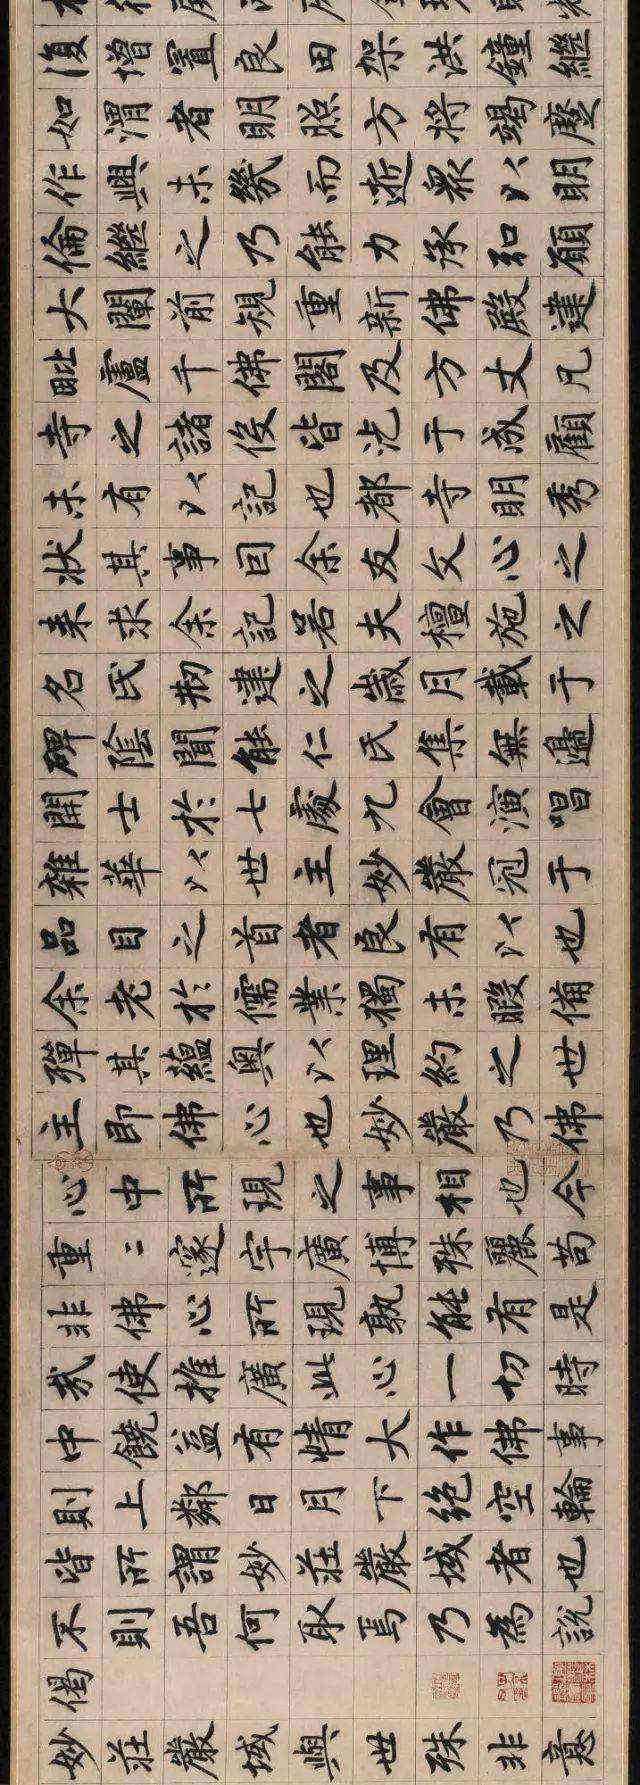 復增置良田架洪鐘繼
如渭者明照方將竭
作興未幾而逝衆以明
倫繼之乃能力承弘願
大闡前規重新佛殿建
毗盧千佛閣及方丈凡
寺之諸役皆汔于成顧
未有以記也都寺明秀
狀其事囙余友文心之
來求余記若夫檀施之
名氏刱建之歲月載于
碑陰聞能仁氏集無邊
開士於七處九會演唱
雜華以世主妙嚴冠于
品目之首者良有以也
余老於儒業獨未暇備
殫其蘊奧以理約之世
主即佛心也妙嚴乃佛
心中所現之事相也今
重二邃宇廣博殊麗苟
非佛心所現孰能有是
哉使推廣此心一切時
中饒益有情大作佛事
則上鄰日月下絕空輪
皆所謂妙莊嚴域者也
不則吾何取焉乃為說
偈
妙莊嚴域與世殊非意